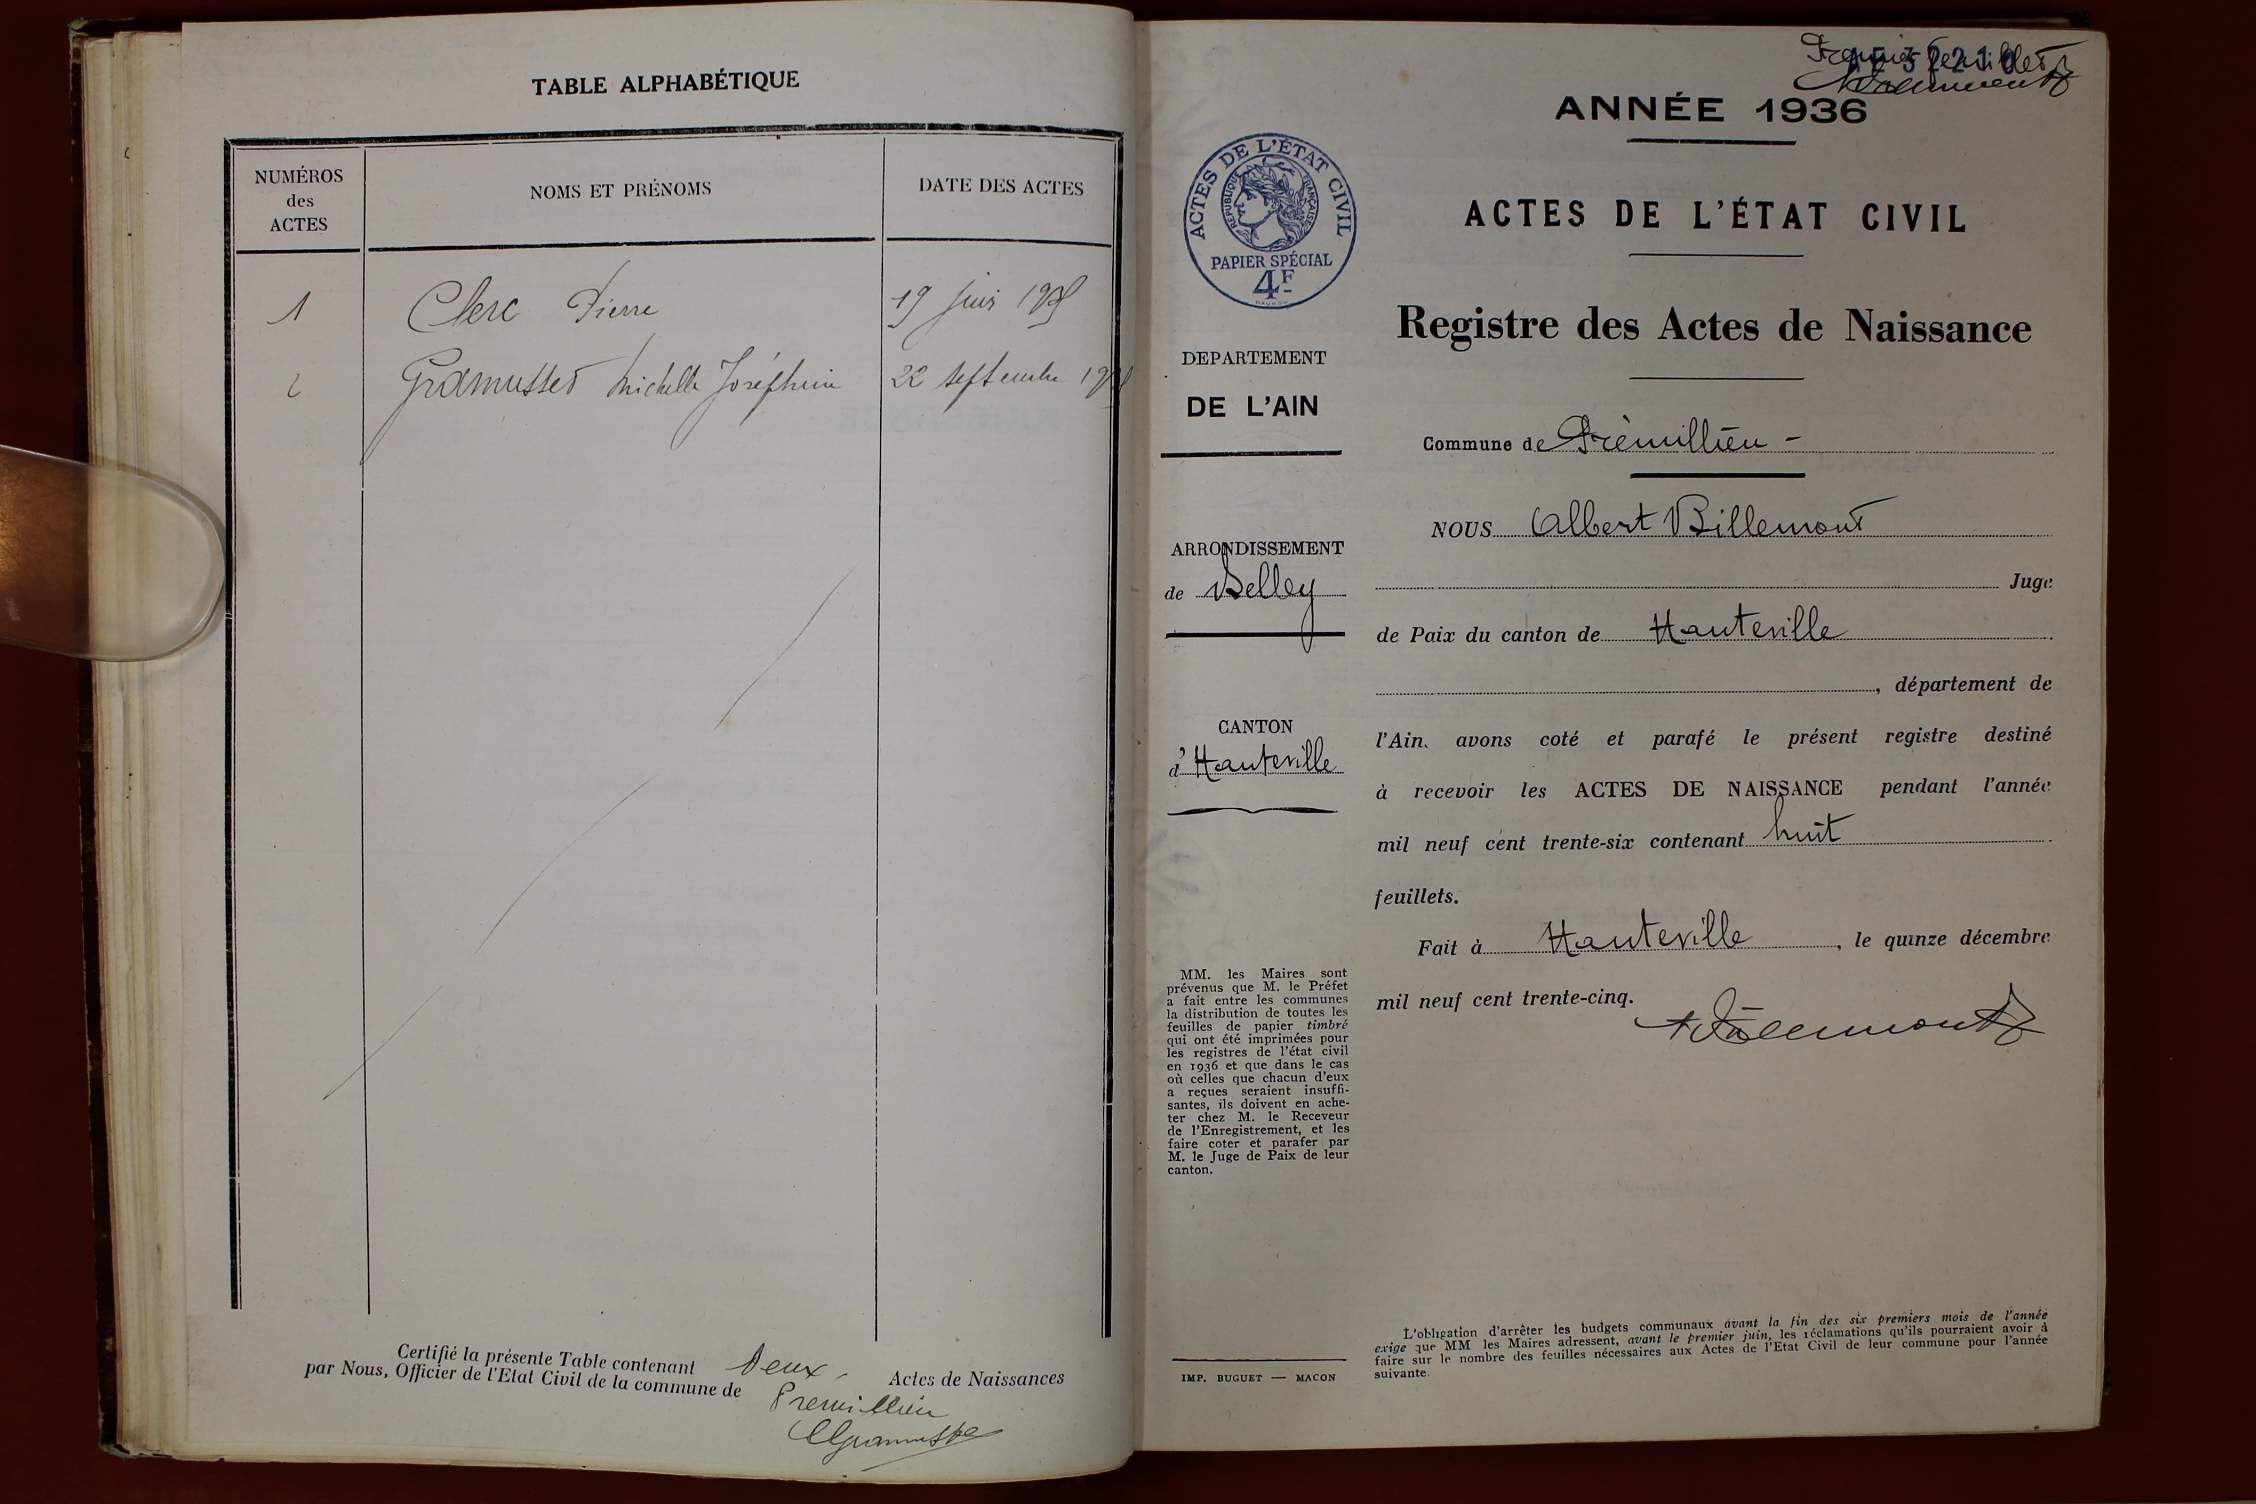 TABLE ALPHABÉTIQUE
NUMÉROS
des
ACTES
NOMS ET PRÉNOMS
DATE DES ACTES
1 Clerc Pierre 19 juin
2 Gramusset Michelle Joséphine 22 septembre
Certifié la présente Table contenant Deux Actes de Naissances
par Nous, Officier de l'Etat Civil de la commune de
Premillieu
Premier feuillet
AE 32210
ANNÉE 1936
ACTES DE L'ÉTAT CIVIL
RÉPUBLIQUE FRANÇAISE
PAPIER SPÉCIAL
4F
ACTES DE L'ÉTAT CIVIL
Registre des Actes de Naissance
DEPARTEMENT
DE L'AIN
Commune de Prémillieu -
ARRONDISSEMENT
de Belley
CANTON
d'Hauteville
NOUS Albert Billemont
Juge
de Paix du canton de Hauteville
, département de
l'Ain, avons coté et parafé le présent registre destiné
à recevoir les ACTES DE NAISSANCE pendant l'année
mil neuf cent trente-six contenant huit
feuillets.
Fait à Hauteville, le quinze décembre
mil neuf cent trente-cinq.
MM. les Maires sont
prévenus que M. le Préfet
a fait entre les communes
la distribution de toutes les
feuilles de papier timbré
qui ont été imprimées pour
les registres de l'état civil
en 1936 et que dans le cas
où celles que chacun d'eux
a reçues seraient insuffi-
santes, ils doivent en ache-
ter chez M. le Receveur
de l'Enregistrement, et les
faire coter et parafer par
M. le Juge de Paix de leur
canton.
IMP. BUGUET — MACON
L'obligation d'arrêter les budgets communaux avant la fin des six premiers mois de l'année
exige que MM les Maires adressent, avant le premier juin, les réclamations qu'ils pourraient avoir à
faire sur le nombre des feuilles nécessaires aux Actes de l'Etat Civil de leur commune pour l'année
suivante.